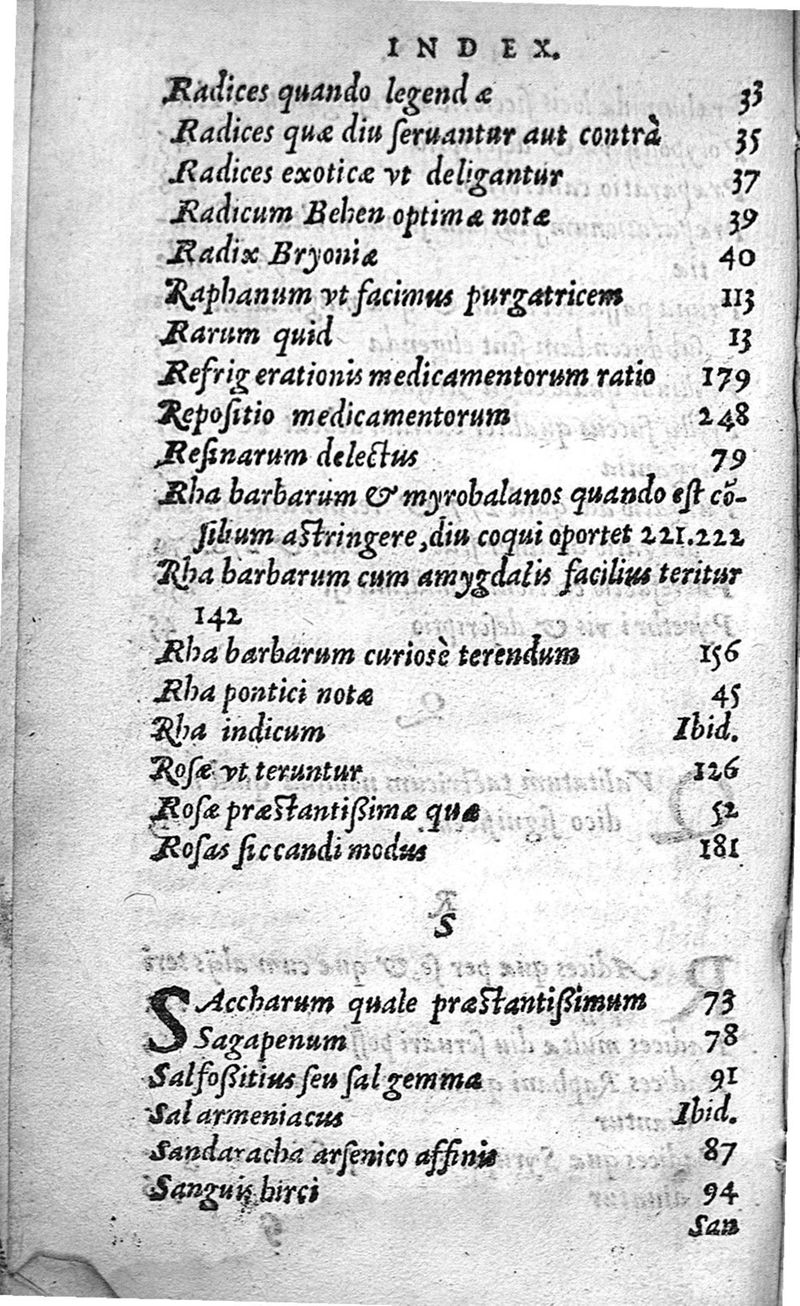 INDEX.
Radices quando legendæ 33
Radices quæ diu ſeruantur aut contrà 35
Radices exoticæ vt deligantur 37
Radicum Behen optimæ notæ 39
Radix Bryoniæ 40
Raphanum vt facimus purgatricem 113
Rarum quid 13
Refrigerationis medicamentorum ratio 179
Repoſitio medicamentorum 248
Reſinarum delectus 79
Rha barbarum & myrobalanos quando eſt cõ-
ſilium aſtringere, diu coqui oportet 221.222
Rha barbarum cum amygdalis facilius teritur
142
Rha barbarum curiosè terendum 156
Rha pontici notæ 45
Rha indicum Ibid.
Roſæ vt teruntur 126
Roſæ præſtantißimæ quæ 52
Roſas ſiccandi modus 181
S
SAccharum quale præſtantißimum 73
Sagapenum 78
Sal foßitius ſeu ſal gemmæ 91
Sal armeniacus Ibid.
Sandaracha arſenico affinis 87
Sanguis hirci 94
San